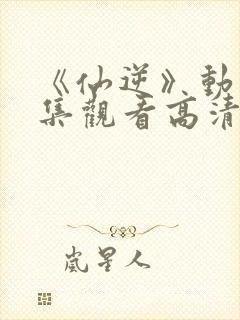 《仙逆》動
集觀看高清
嵐星人